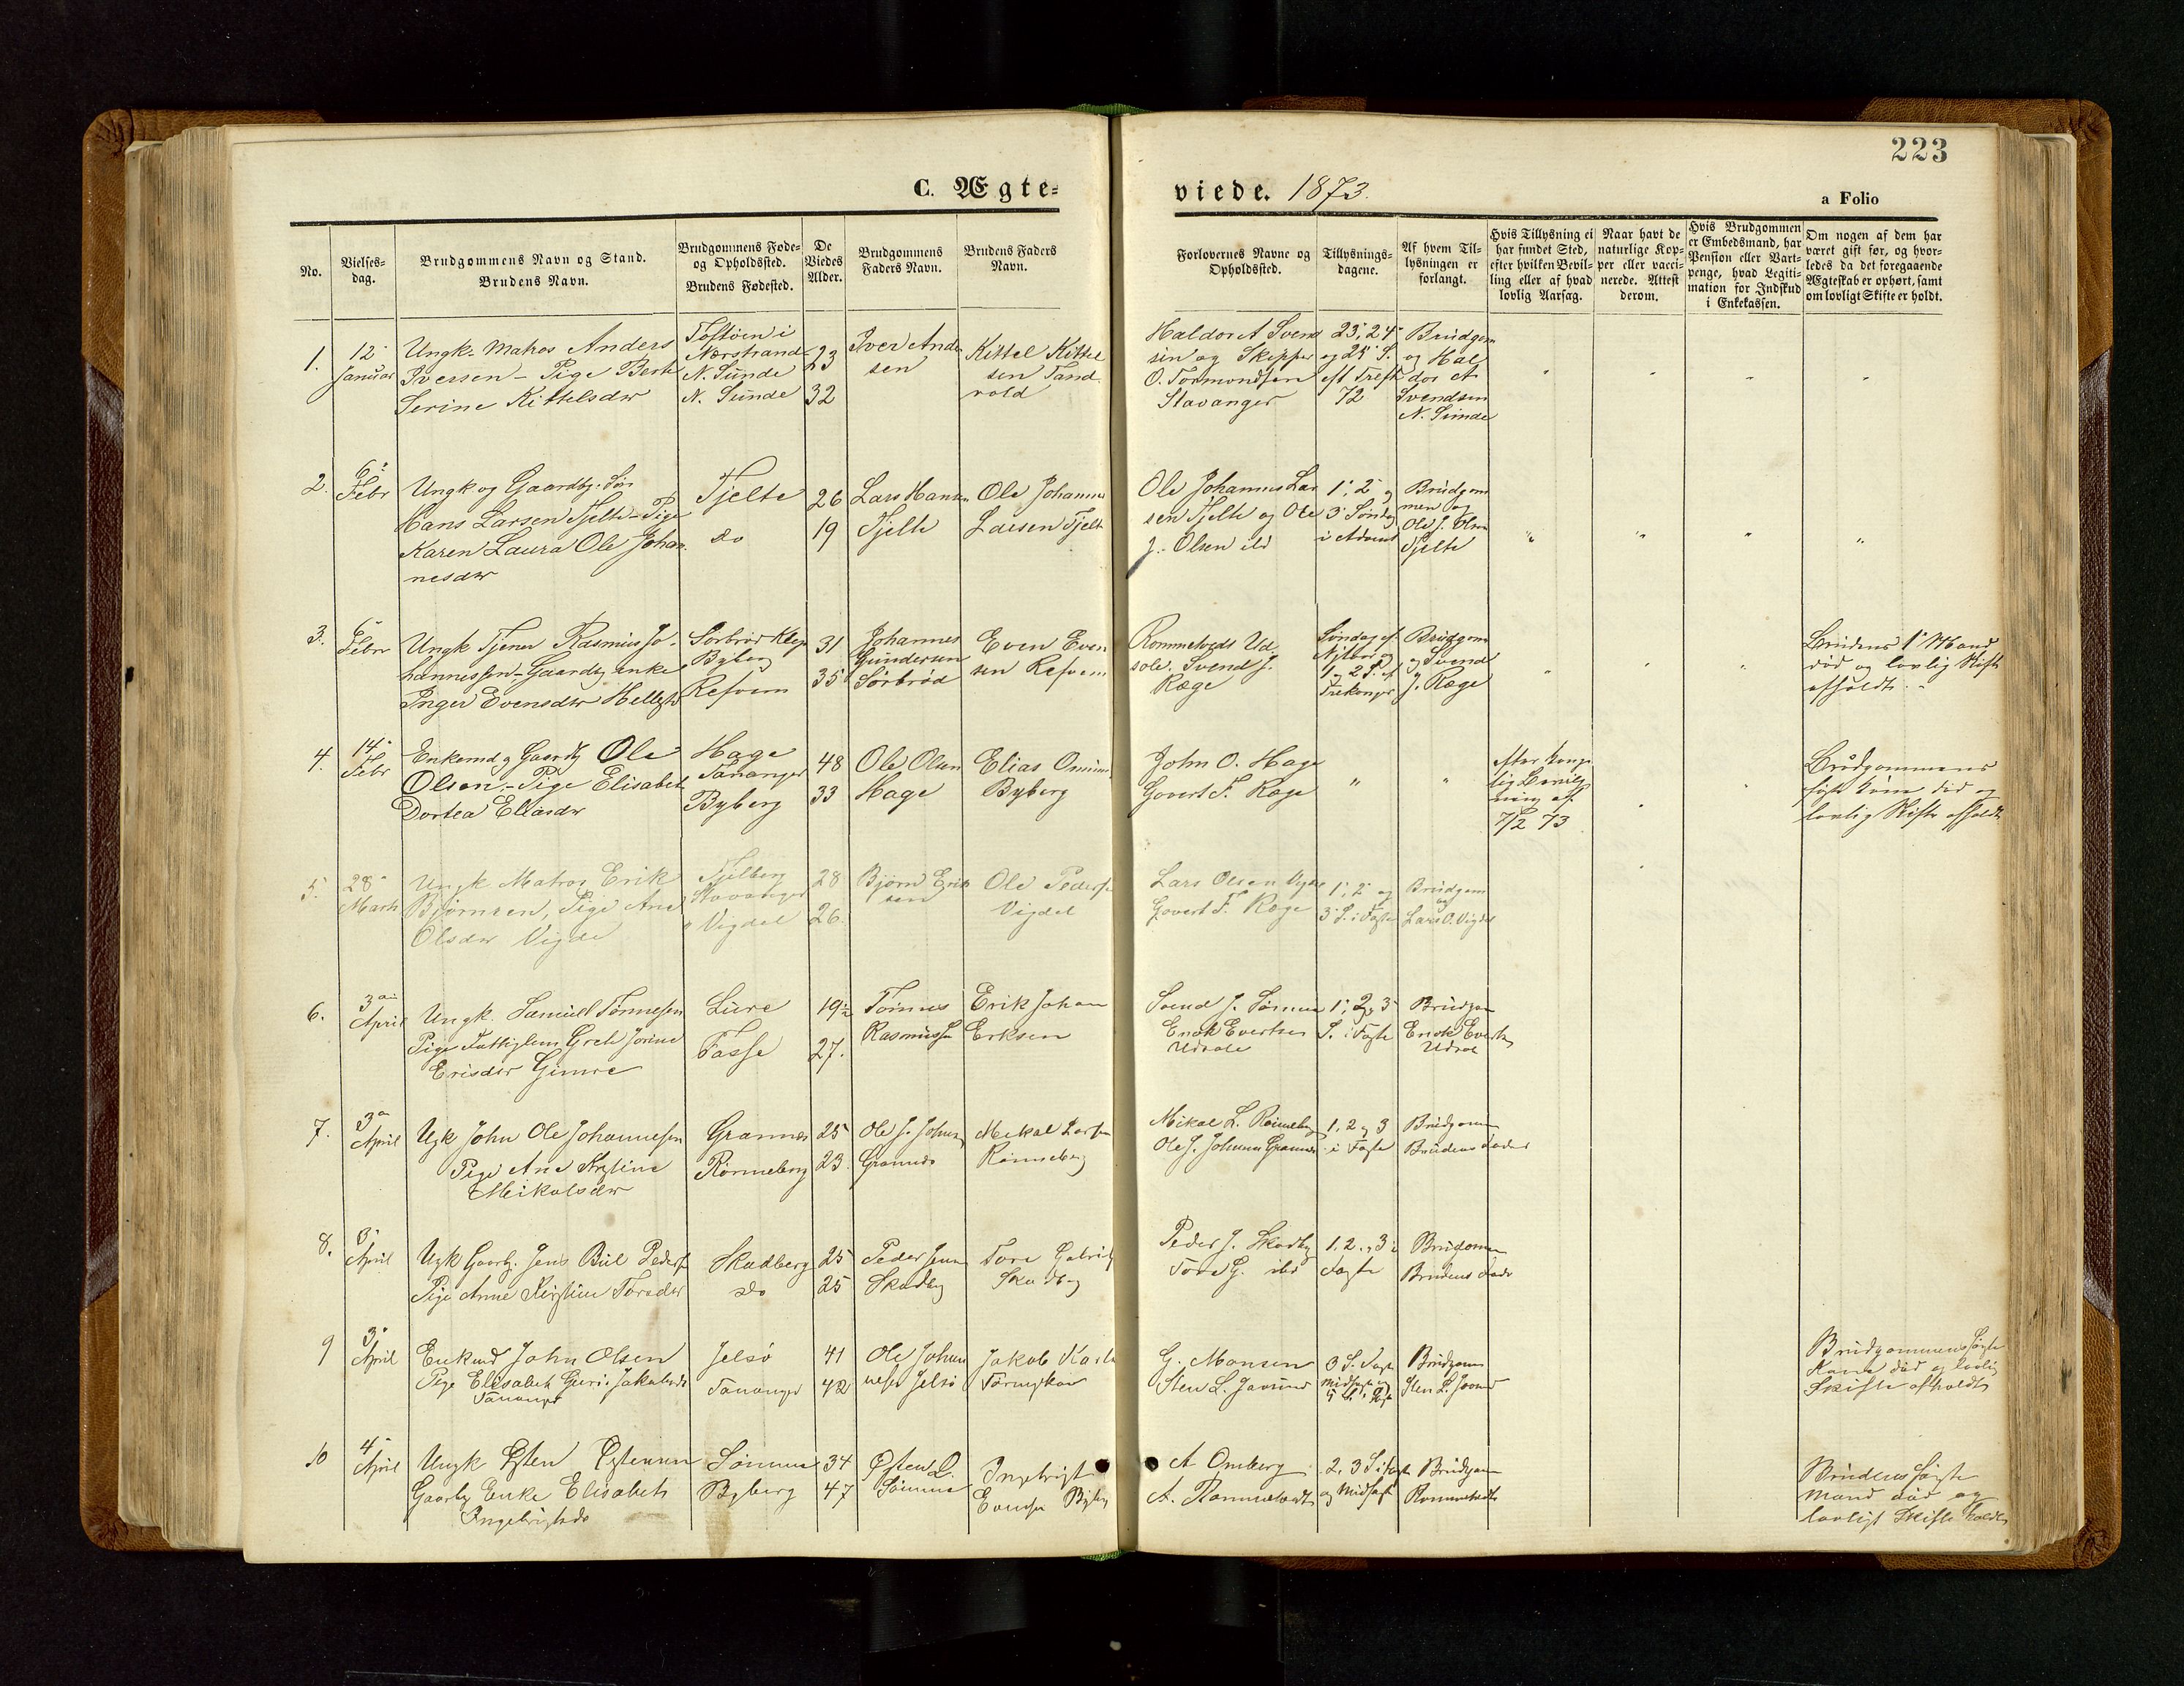 223
C. Ægte=
viede. 1873.
a Folio
No.
Vielses=
dag.
Brudgommens Navn og Stand.
Brudens Navn.
Brudgommens Føde=
og Opholdssted.
Brudens Fødested.
De
Viedes
Alder.
Brudgommens
Faders Navn.
Brudens Faders
Navn.
Forlovernes Navne og
Opholdssted.
Tillysnings=
dagene.
Af hvem Til=
lysningen er
forlangt.
Hvis Tillysning ei
har fundet Sted,
efter hvilken Bevil=
ling eller af hvad
lovlig Aarsag.
Naar havt de
naturlige Kop=
per eller vacci=
nerede. Attest
derom.
Hvis Brudgommen
er Embedsmand, har
Pension eller Vart=
penge, hvad Legiti=
mation for Indskud
i Enkekassen.
Om nogen af dem har
været gift før, og hvor=
ledes da det foregaaende
Ægteskab er ophørt, samt
om lovligt Skifte er holdt.
1.
12
Januar
Ungk. Matros Anders
Iversen - Pige Berte
Serine Kittelsdtr
Toftøen i
Nærstrand
N. Sunde
N. Sunde
23
32
Iver Ander
sen
Kittel Kittel
sen Tand
vold
Haldor A Svend
sen og Skipper
O. Tormondsen
Stavanger
23, 24
og 25 S.
eft Tref
72
Brudgom
og Hal
dor A
Svendsen
N. Sunde
2.
6
Febr
Ungk og Gaardbr. Søn
Hans Larsen Tjelte - Pige
Karen Laura Ole Johan
nesdtr
Tjelte
do
26
19
Lars Hansen
Tjelte
Ole Johannes
Larsen Tjelte
Ole Johannes Lar
sen Tjelte og Ole
J. Olsen ibd
1, 2 og
3 Søndag
i Advent
Brudgom
men og
Ole J. Olsen
Tjelte
3.
6
Febr
Ungk Tjener Rasmus Jo-
hannessen - Gaardbr enke
Inger Evensdtr Hellestø
Sørbrød Klep
Byberg
Refvem
31
35
Johannes
Gundersen
Sørbrød
Even Even
sen Refvem
Rommetvedt Ud
sole. Svend J.
Ræge
Søndag ef
Nytaar og
1 og 2 S. ef
Trekonger
Brudgom
og Svend
J. Ræge
Brudens 1 Mand
død og lovlig Skift
afholdt.
4.
14
Febr
Enkemd og Gaardb Ole
Olsen - Pige Elisabet
Dortea Eliasdtr
Hage
Tananger
Byberg
48
33
Ole Olsen
Hage
Elias Omun
Byberg
John O. Hage
Govert F. Ræge
efter kong
lig Bevilg
ning af
7/2 73
Brudgommens
første kone død og
lovlig Skifte afholdt
5.
28
Marts
Ungk Matros Erik
Bjørnsen, Pige Ane
Olsdtr Vigde
Tjelberg
Stavanger
Vigdel
28
26
Bjørn Erik
sen
Ole Peders
Vigdel
Lars Olsen Vigde
Govert F. Ræge
1, 2 og
3 S. i Faste
Brudgom
og
Lars O. Vigdel
6.
3
April
Ungk. Samuel Tønnesen
Pige Fattiglem Grete Jorine
Ericsdtr Gimre
Lure
Tasse
19½
27.
Tønnes
Rasmussen
Erik Johan
Erksen
Svend J. Sømme
Enok Evertsen
Udsole
1, 2 og 3
S. i Faste
Brudgom
Enok Evertsen
Udsole
7.
3
April
Ugk John Ole Johannesen
Pige Ane Kristine
Mikalsdtr
Grannes
Rønneberg
25
23
Ole J. Johns
Grannes
Mikal Larsen
Rønneberg
Mikal L. Rønneberg
Ole J. Johnsen Grannes
1, 2 og 3
i Faste
Brudgommen
Brudens Fader
8.
3
April
Ugk Gaarb. Jens Biil Peders
Pige Anne Kirstine Toresdtr
Skadberg
do
25
25
Peder Jensen
Skadbg
Tore Gabriels
Skadbg
Peder J. Skadbg
Tore G. ibd
1, 2 og 3 i
Faste
Brudgommen
Brudens Fader
9
3
April
Enkmd John Olsen
Pige Elisabet Guri Jakobsdtr
Tananger
Jelsø
Tananger
41
42
Ole Johan
nesen Jelsø
Jakob Karls
G. Monsen
Sten L.
3 S. Faste
Midfaste og
5 S. i Faste
Brudgom
Sten L.
Brudgommens første
Kone død og lovlig
Skifte afholdt
10
4
April
Ungk Østen Østensen
Gaarbr Enke Elisabeth
Ingebrigtsdtr
Sømme
Byberg
34
47
Østen L.
Sømme
Ingebrigt
Evensen Byberg
A Omberg
A. Rommetvedt
2, 3 S i Fast
og Midfast
Brudgom
Rommetvedt
Brudens første
Mand død og
lovligt Skifte holdt